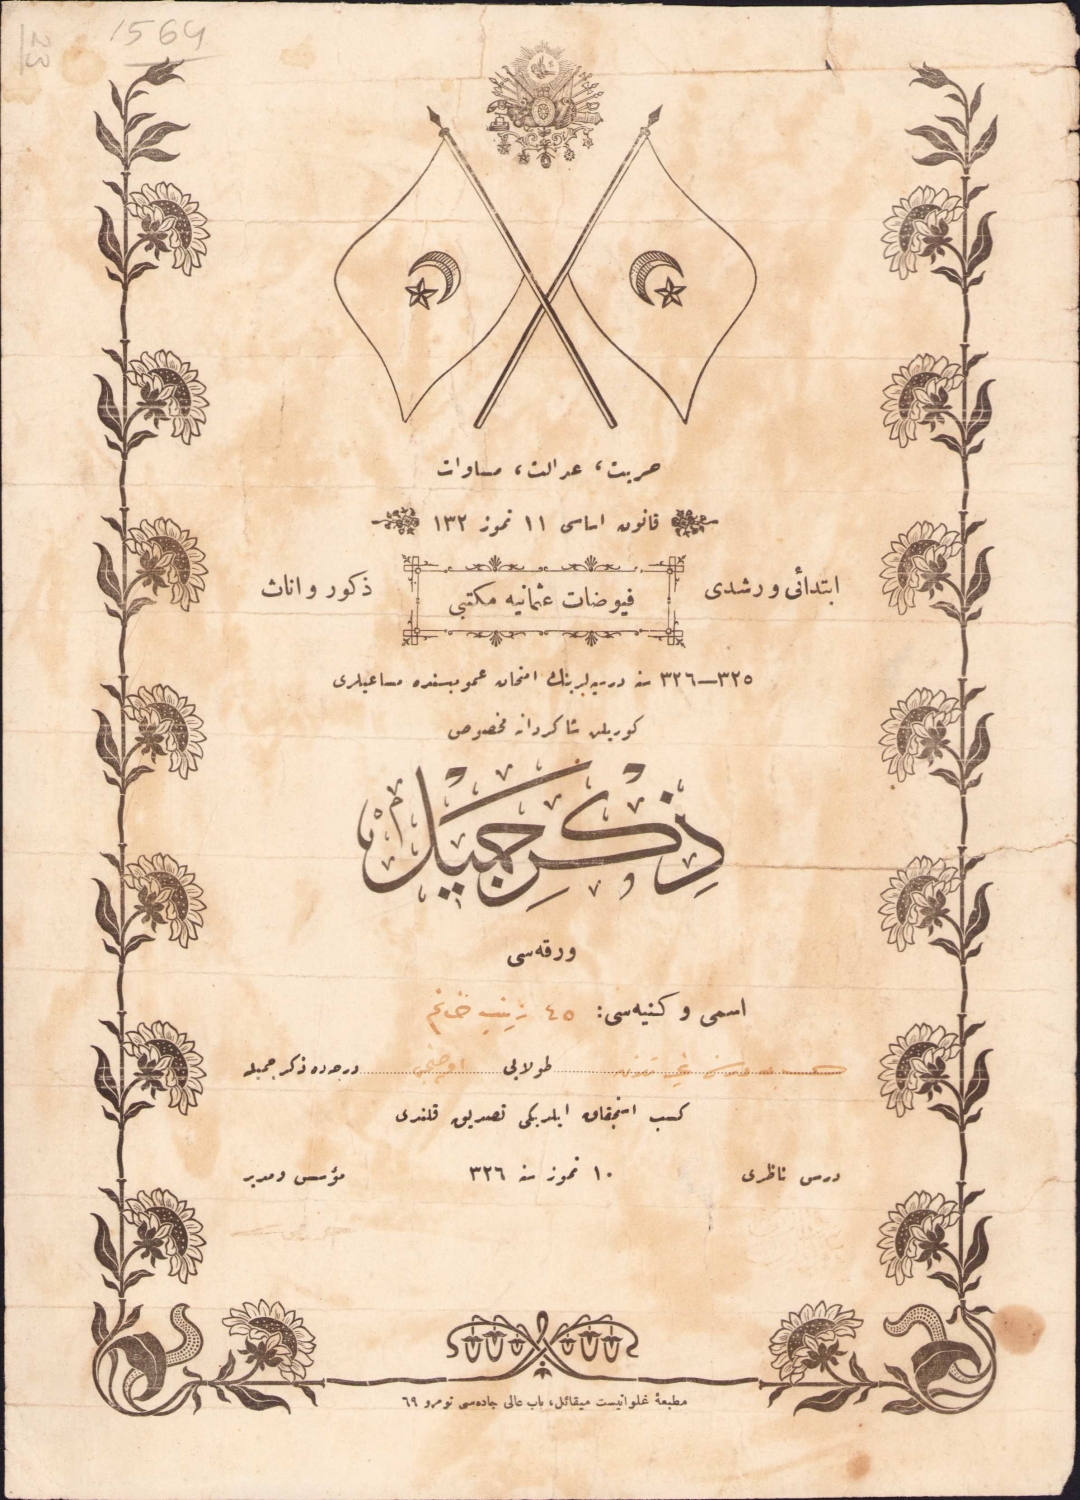 1564
23
حریت، عدالت، مساوات
قانون اساسی ۱۱ تموز ۱۳۲
ابتدائی و رشدی
فیوضات عثمانیه مکتبی
ذکور و اناث
۳۲۵—۳۲٦ سنه درسیه‌لرینك امتحان عمومیسنده مساعیلری
كوریلن شاكردانه مخصوص
ذِكْرِ جَمِيل
ورقه‌سی
اسمی و كنیه‌سی: ٤٥ زینب خانم
طولایی درجه‌ده ذكر جمیله
كسب استحقاق ایلدیكی تصدیق قلندی
درس ناظری
۱۰ تموز سنه ۳۲٦
مؤسس و مدیر
مطبعۀ غلوانیست میقائل، باب عالی جاده‌سی نومرو ٦۹